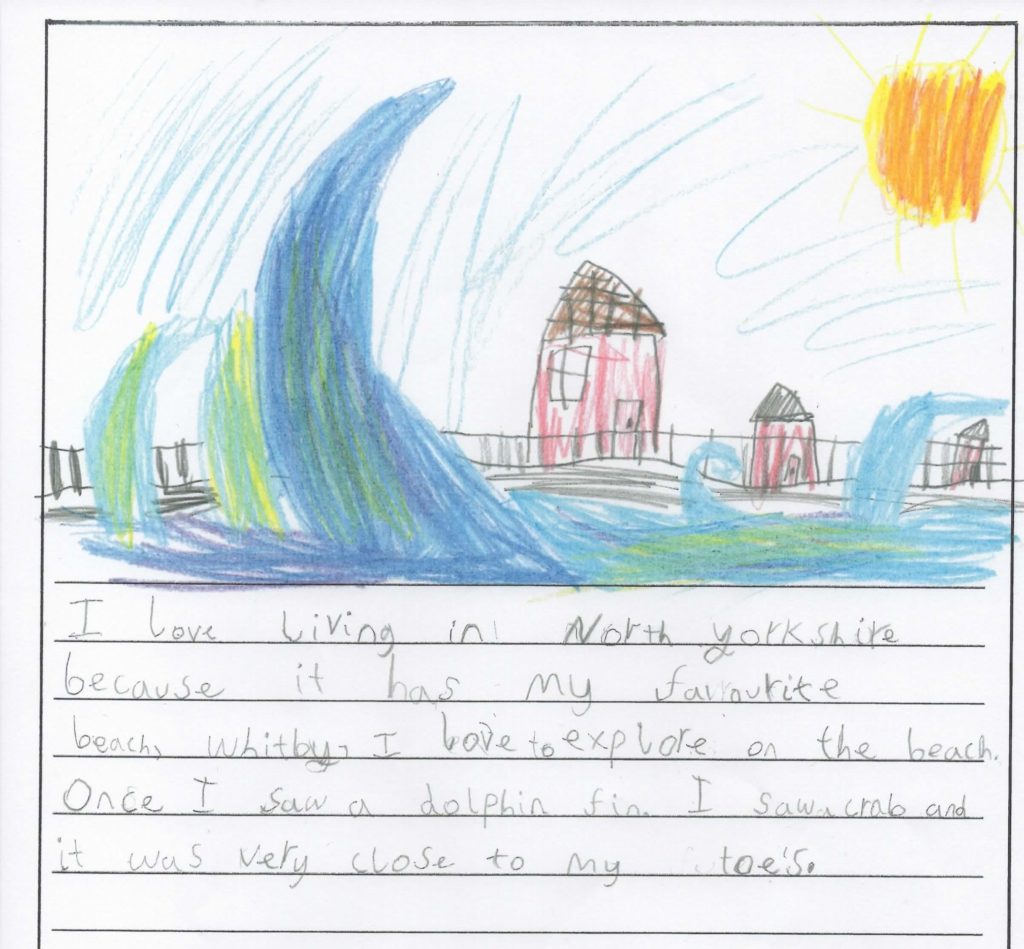 I love living in North yorkshire
because it has my favourite
beach, whitby, I love to explore on the beach.
Once I saw a dolphin fin. I saw a crab and
it was very close to my toe's.